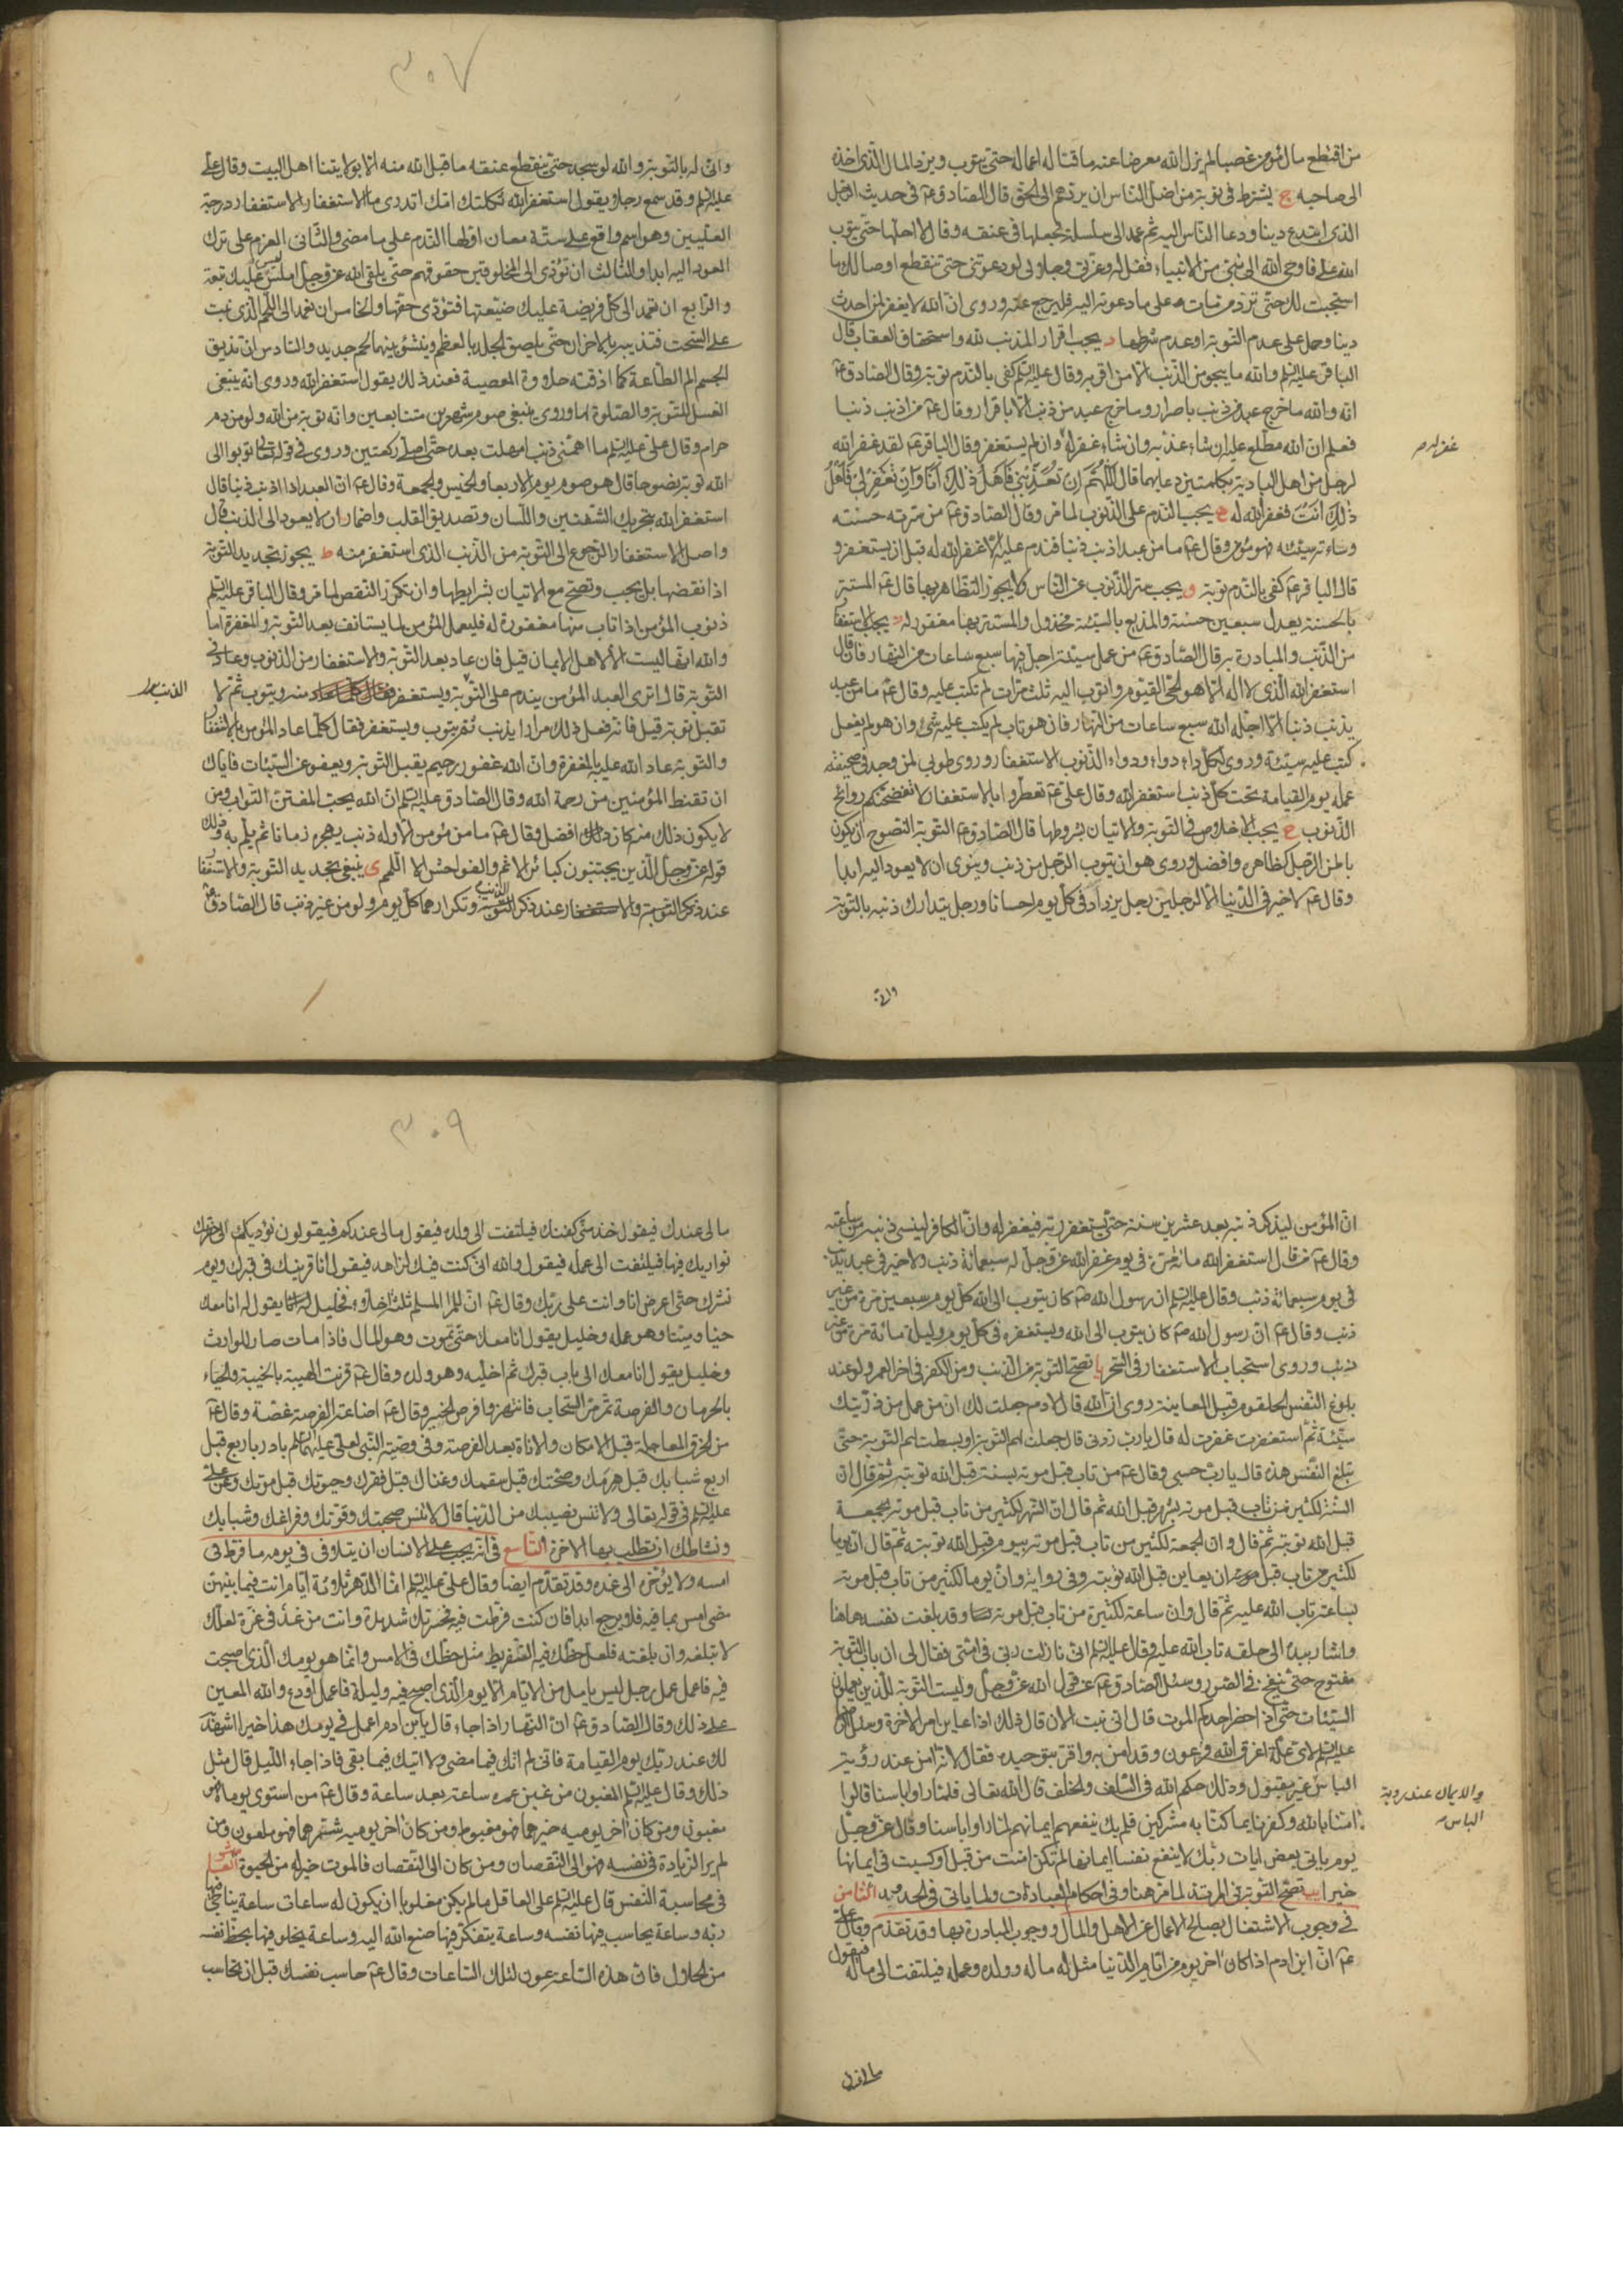 من اقتطع مال مؤمن غصبا لم يزل الله معرضا عنه ماقتا له اعماله حتى يتوب ويرد المال الذى اخذه
الى صاحبه ج يشترط فى توبة من اضل الناس ان يردهم الى الحق قال الصادق ع‍ فى حديث الرجل
الذى ابتدع دينا ودعا الناس اليه ثم عمد الى سلسلة فجعلها فى عنقه وقال لا احلها حتى يتوب
الله على فاوحى الله الى نبى من الانبياء فقل له وعزتى وجلالى لو دعوتنى حتى تنقطع اوصالك ما
استجبت لك حتى ترد من مات على ما دعوته اليه فليرجع عنه وروى ان الله لا يغفر لمن احدث
دينا وحمل على عدم التوبة او عدم شرطها د يجب اقرار المذنب لله واستحقاق العقاب قال
الباقر عليه السلم والله ما ينجو من الذنب الا من اقر به وقال عليه السلم كفى بالندم توبة وقال الصادق ع‍
انه والله ما خرج عبد من ذنب باصرار وما خرج عبد من ذنب الا باقرار وقال ع‍ من اذنب ذنبا
فعلم ان الله مطلع عليه ان شاء عذبه وان شاء غفر له وان لم يستغفر وقال الباقر ع‍ لقد غفر الله
غفر له ص
لرجل من اهل البادية بكلمتين دعا بهما قال اللهم ان تعذبنى فاهل ذلك انا وان تغفر لى فاهل
ذلك انت فغفر الله له ه يجب الندم على الذنوب لما مر وقال الصادق ع‍ من سرته حسنته
وساءته سيئته فهو مؤمن وقال ع‍ ما من عبد اذنب ذنبا فندم عليه الا غفر الله له قبل ان يستغفر و
قال الباقر ع‍ كفى بالندم توبة و يجب ستر الذنوب عن الناس كما يجوز التظاهر بها قال ع‍ المستتر
بالحسنة يعدل سبعين حسنة والمذيع بالسيئة مخذول والمستتر بها مغفور له ز يجب الاستغفار
من الذنب والمبادرة به قال الصادق ع‍ من عمل سيئة اجل فيها سبع ساعات من النهار فان قال
استغفر الله الذى لا اله الا هو الحى القيوم واتوب اليه ثلث مرات لم تكتب عليه وقال ع‍ ما من عبد
يذنب ذنبا الا اجله الله سبع ساعات من النهار فان هو تاب لم يكتب عليه شئ وان هو لم يفعل
كتب عليه سيئة وروى لكل داء دواء ودواء الذنوب الاستغفار وروى طوبى لمن وجد فى صحيفة
عمله يوم القيامة تحت كل ذنب استغفر الله وقال على ع‍ تعطروا بالاستغفار لا تفضحنكم روائح
الذنوب ح يجب الاخلاص فى التوبة والاتيان بشروطها قال الصادق ع‍ التوبة النصوح ان يكون
باطن الرجل كظاهره وافضل وروى هو ان يتوب الرجل من ذنب وينوى ان لا يعود اليه ابدا
وقال ع‍ لا خير فى الدنيا الا لرجلين رجل يزداد فى كل يوم احسانا ورجل يتدارك ذنبه بالتوبة
وانى
٣٠٧
وانى له بالتوبة والله لو سجد حتى ينقطع عنقه ما قبل الله منه الا بولايتنا اهل البيت وقال على
عليه السلم وقد سمع رجلا يقول استغفر الله ثكلتك امك اتدرى ما الاستغفار الاستغفار درجة
العليين وهو اسم واقع على ستة معان اولها الندم على ما مضى والثانى العزم على ترك
العود اليه ابدا والثالث ان تؤدى الى المخلوقين حقوقهم حتى يلقى الله عز وجل املس ليس عليك تبعة
والرابع ان تعمد الى كل فريضة عليك ضيعتها فتؤدى حقها والخامس ان تعمد الى اللحم الذى نبت
على السحت فتذيبه بالاحزان حتى يلصق الجلد بالعظم وينشئ بينهما لحم جديد والسادس ان تذيق
الجسم الم الطاعة كما اذقته حلاوة المعصية فعند ذلك يقول استغفر الله وروى انه ينبغى
الغسل للتوبة والصلوة اما وروى ينبغى صوم شهرين متتابعين وانه توبة من الله ولو من دم
حرام وقال على عليه السلم ما اهمنى ذنب امهلت بعده حتى اصلى ركعتين وروى فى قوله تعالى توبوا الى
الله توبة نصوحا قال هو صوم يوم الاربعا والخميس والجمعة وقال ع‍ ان العبد اذا اذنب ذنبا قال
استغفر الله بتحريك الشفتين واللسان وتصديق القلب واضمار ان لا يعود الى الذنب قال
واصل الاستغفار الرجوع الى التوبة من الذنب الذى استغفر منه ط يجوز تجديد التوبة
اذا نقضها بل يجب وتصح مع الاتيان بشرايطها وان تكرر النقص لما مر وقال الباقر عليه السلم
ذنوب المؤمن اذا تاب منها مغفورة له فليعمل المؤمن لما يستانف بعد التوبة والمغفرة اما
والله انها ليست الا لاهل الايمان قيل فان عاد بعد التوبة والاستغفار من الذنوب وعاد فى
التوبة قال اترى العبد المؤمن يندم على التوبة ويستغفر منه ويتوب ثم لا
الذنب ط
تقبل توبته قيل فانه فعل ذلك مرارا يذنب ثم يتوب ويستغفر فقال كلما عاد المؤمن بالاستغفار
والتوبة عاد الله عليه بالمغفرة وان الله غفور رحيم يقبل التوبة ويعفو عن السيئات فاياك
ان تقنط المؤمنين من رحمة الله وقال الصادق عليه السلم ان الله يحب المفتن التواب ومن
لا يكون ذلك منه كان افضل وقال ع‍ ما من مؤمن الا وله ذنب يهجره زمانا ثم يلم به وذلك
قوله عز وجل الذين يجتنبون كبائر الاثم والفواحش الا اللمم ى ينبغى تجديد التوبة والاستغفار
عند ذكر الذنب وتكرارهما كل يوم ولو من غير ذنب قال الصادق ع‍
ان المؤمن ليذكر ذنبه بعد عشرين سنة حتى يستغفر ربه فيغفر له وان الكافر لينسى ذنبه من ساعته
وقال ع‍ من قال استغفر الله مائة مرة فى يوم غفر الله عز وجل له سبعمائة ذنب ولا خير فى عبد يذنب
فى يوم سبعمائة ذنب وقال عليه السلم ان رسول الله ص‍ كان يتوب الى الله كل يوم سبعين مرة من غير
ذنب وقال ع‍ ان رسول الله ص‍ كان يتوب الى الله ويستغفره فى كل يوم وليلة مائة مرة من غير
ذنب وروى استحباب الاستغفار فى السحر يا تصح التوبة من الذنب ومن الكفر فى اخر العمر ولو عند
بلوغ النفس الحلقوم قبل المعاينة روى ان الله قال لادم جعلت لك ان من عمل من ذريتك
سيئة ثم استغفرت غفرت له قال يا رب زدنى قال جعلت لهم التوبة وبسطت لهم التوبة حتى
تبلغ النفس هذه قال يا رب حسبى وقال ع‍ من تاب قبل موته بسنة قبل الله توبته ثم قال ان
السنة لكثير من تاب قبل موته بشهر قبل الله ثم قال ان الشهر لكثير من تاب قبل موته بجمعة
قبل الله توبته ثم قال وان الجمعة لكثير من تاب قبل موته بيوم قبل الله توبته ثم قال ان يوما
لكثير من تاب قبل ان يعاين قبل الله توبته وفى رواية وان يوما لكثير من تاب قبل موته
بساعة تاب الله عليه ثم قال وان ساعة لكثيرة من تاب قبل موته وقد بلغت نفسه هاهنا
واشار بيده الى حلقه تاب الله عليه وقال عليه السلم انى نازلت ربى فى امتى فقال لى ان باب التوبة
مفتوح حتى ينفخ فى الصور وسئل الصادق ع‍ عن قول الله عز وجل وليست التوبة للذين يعملون
السيئات حتى اذا حضر احدهم الموت قال انى تبت الان قال ذلك اذا عاين امر الاخرة وسئل الرضا
عليه السلم لاى علة اغرق الله فرعون وقد امن به واقر بتوحيده فقال لانه امن عند رؤية
الباس غير مقبول وذلك حكم الله فى السلف والخلف قال الله تعالى فلما راوا باسنا قالوا
والايمان عند روية
الباس ص
امنا بالله وكفرنا بما كنا به مشركين فلم يك ينفعهم ايمانهم لما راوا باسنا وقال عز وجل
يوم ياتى بعض ايات ربك لا ينفع نفسا ايمانها لم تكن امنت من قبل او كسبت فى ايمانها
خيرا يب تصح التوبة من المرتد لما مر هنا وفى احكام العبادات ولما ياتى فى الحدود الثامن
فى وجوب الاشتغال بصالح الاعمال عن الاهل والمال ووجوب المبادرة بها وقد تقدم وقال على
ع‍ ان ابن ادم اذا كان اخر يوم من ايام الدنيا مثل له ماله وولده وعمله فيلتفت الى ماله فيقول
٣٠٩
ما لى عندك فيقول خذ منى كفنك فيلتفت الى ولده فيقول ما لى عندكم فيقولون نؤديك الى حفرتك
نواريك فيها فيلتفت الى عمله فيقول والله انى كنت فيك لزاهد فيقول انا قرينك فى قبرك ويوم
نشرك حتى اعرض انا وانت على ربك وقال ع‍ ان للمرا المسلم ثلث اخلاء فخليل يقول له انا معك
حيا وميتا وهو عمله وخليل يقول انا معك حتى تموت وهو المال فاذا مات صار للوارث
وخليل يقول انا معك الى باب قبرك ثم اخليك وهو ولده وقال ع‍ قرنت الهيبة بالخيبة والحياء
بالحرمان والفرصة تمر مر السحاب فانتهزوا فرص الخير وقال ع‍ اضاعة الفرصة غصة وقال ع‍
من الخرق المعاجلة قبل الامكان والاناة بعد الفرصة وفى وصية النبى لعلى عليهما السلم بادر باربع قبل
اربع شبابك قبل هرمك وصحتك قبل سقمك وغناك قبل فقرك وحيوتك قبل موتك وعن على
عليه السلم فى قوله تعالى ولا تنس نصيبك من الدنيا قال لا تنس صحتك وقوتك وفراغك وشبابك
ونشاطك ان تطلب بها الاخرة التاسع فى انه يجب على الانسان ان يتلافى فى يومه ما فرط فى
امسه ولا يؤخره الى غده وقد تقدم ايضا وقال على عليه السلم انما الدهر ثلاثة ايام انت فيما بينهن
مضى امس بما فيه فلا يرجع ابدا فان كنت فرطت فيه فحسرتك شديدة وانت من غد فى غرة لعلك
لا تبلغه وان بلغته فلعل حظك فيه التفريط مثل حظك فى الامس وانما هو يومك الذى اصبحت
فيه فاعمل عمل رجل ليس يامل من الايام الا يوم الذى اصبح فيه وليلة فاعمل اودع والله المعين
على ذلك وقال الصادق ع‍ ان النهار اذا جاء قال يا ابن ادم اعمل فى يومك هذا خيرا اشهد
لك عند ربك يوم القيامة فانى لم اتك فيما مضى ولا اتيك فيما بقى فاذا جاء الليل قال مثل
ذلك وقال عليه السلم المغبون من غبن عمره ساعة بعد ساعة وقال ع‍ من استوى يوماه فهو
مغبون ومن كان اخر يوميه خيرهما فهو مغبوط ومن كان اخر يوميه شرهما فهو ملعون ومن
لم ير الزيادة فى نفسه فهو الى النقصان ومن كان الى النقصان فالموت خير له من الحيوة
فى محاسبة النفس قال عليه السلم على العاقل ما لم يكن مغلوبا ان يكون له ساعات ساعة يناجى فيها
ربه وساعة يحاسب فيها نفسه وساعة يتفكر فيها صنع الله اليه وساعة يخلو فيها بحظ نفسه
من الحلال فان هذه الساعة عون لتلك الساعات وقال ع‍ حاسب نفسك قبل ان تحاسب